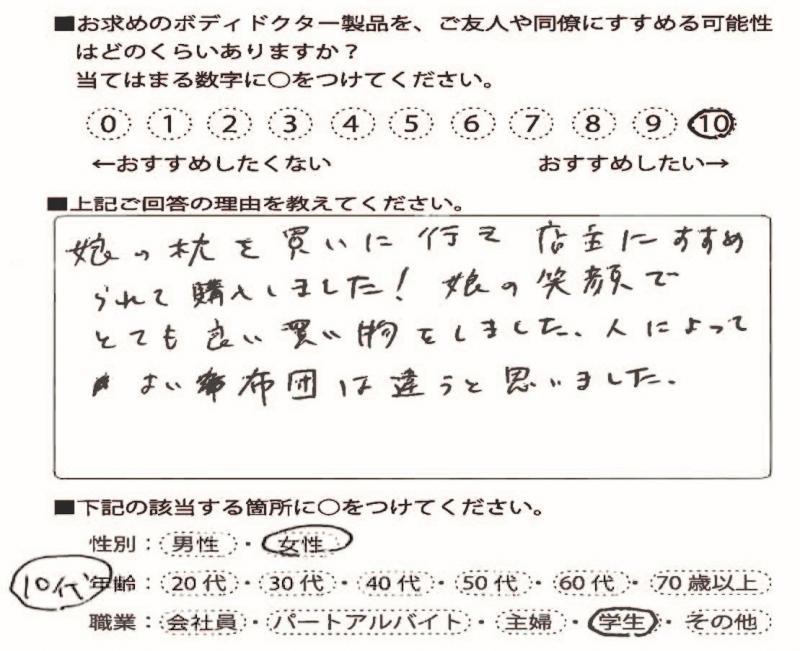 ■お求めのボディドクター製品を、ご友人や同僚にすすめる可能性
はどのくらいありますか？
当てはまる数字に○をつけてください。
0 1 2 3 4 5 6 7 8 9 10
←おすすめしたくない おすすめしたい→
■上記ご回答の理由を教えてください。
娘の枕を買いに行て店主にすすめ
られて購入しました！娘の笑顔で
とても良い買い物をしました。人によって
よい布団は違うと思いました。
■下記の該当する箇所に○をつけてください。
性別：男性・女性
10代 年齢：20代・30代・40代・50代・60代・70歳以上
職業：会社員・パートアルバイト・主婦・学生・その他